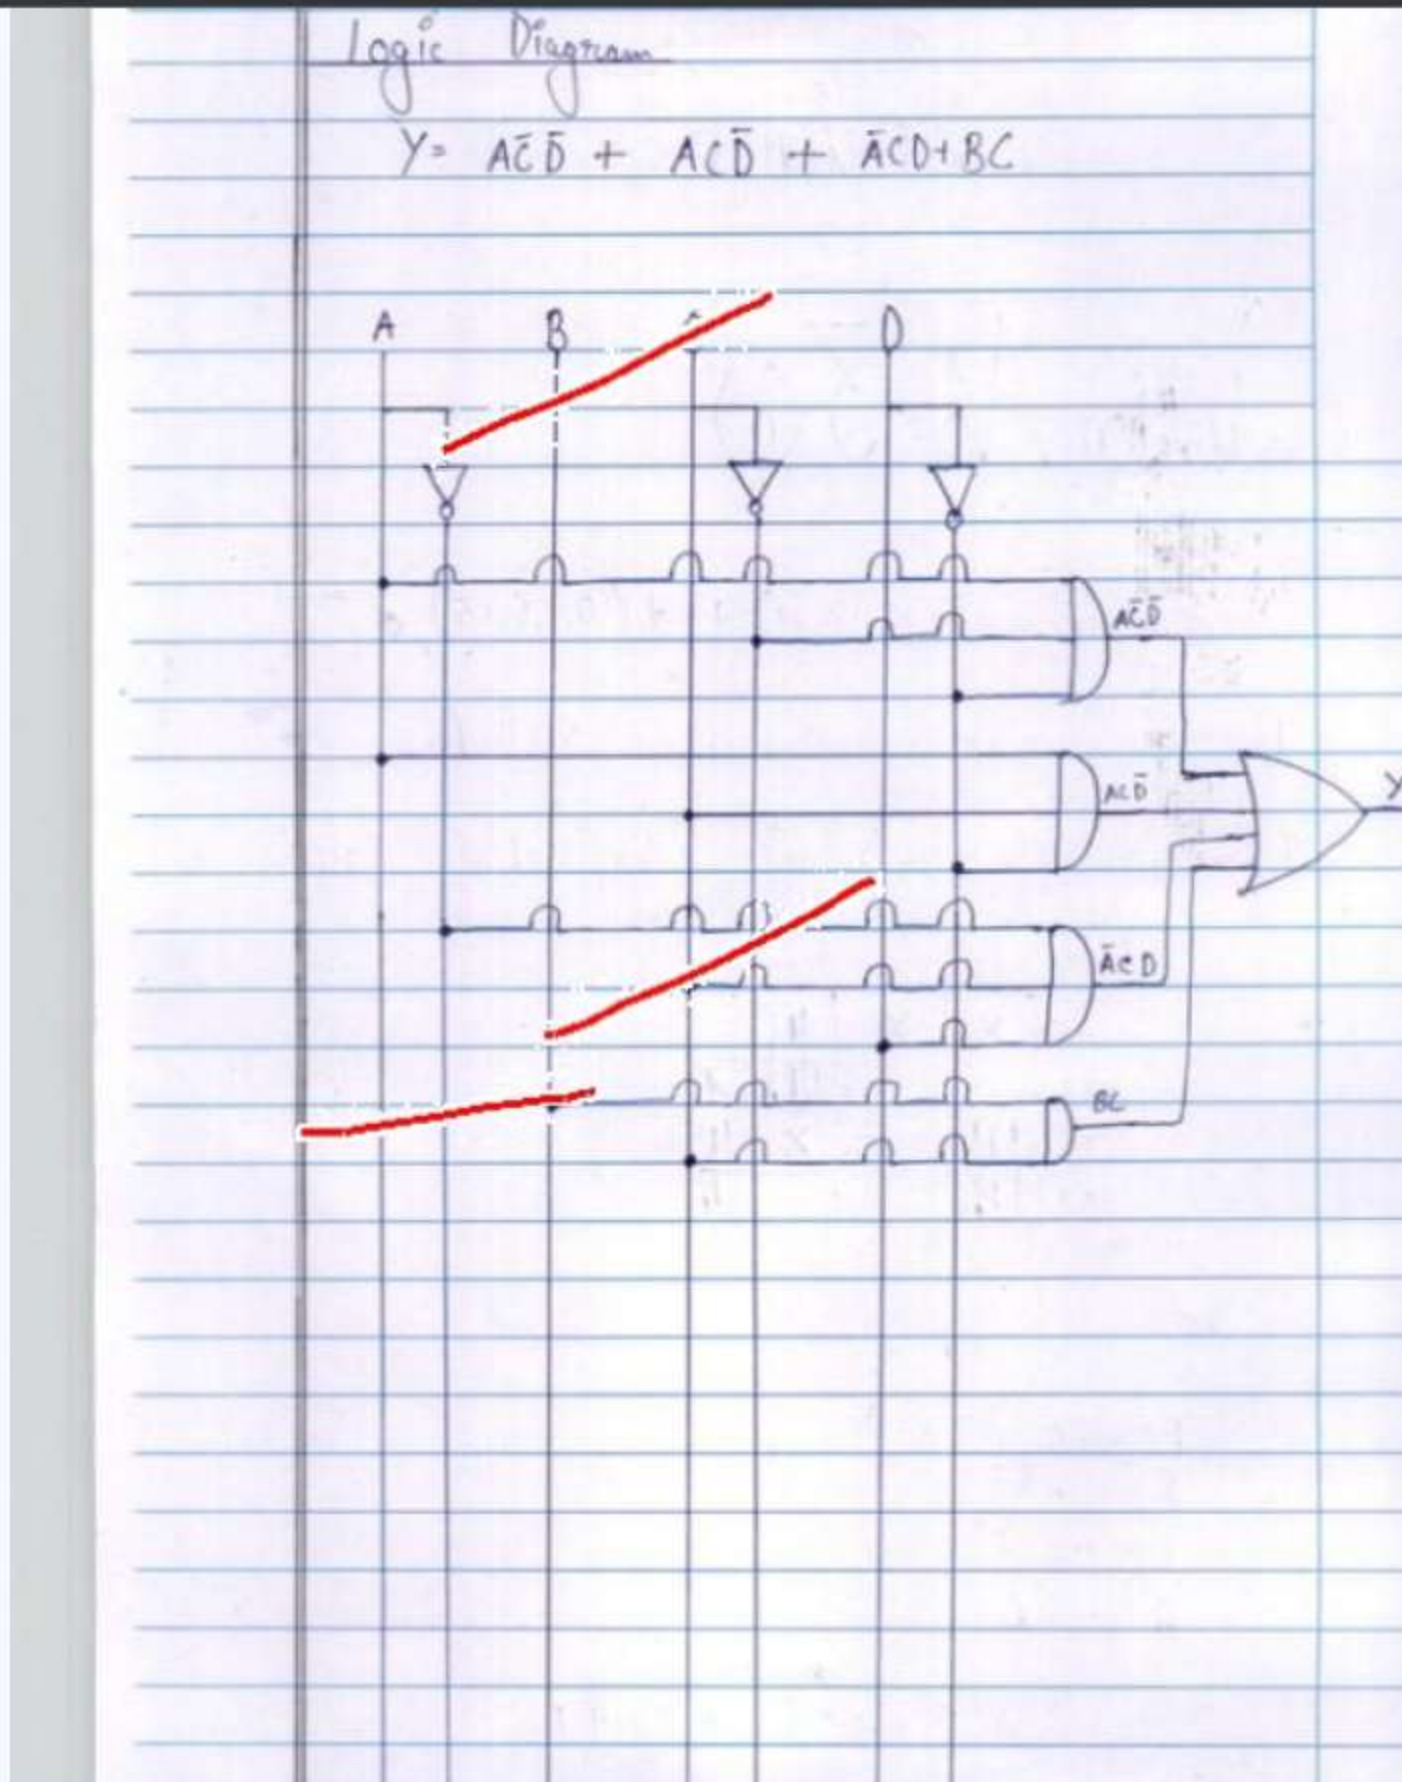 Logic Diagram
Y= AC̅D̅ + ACD̅ + A̅CD+BC
A B D
AC̅D̅
ACD̅
Y
A̅CD
BC